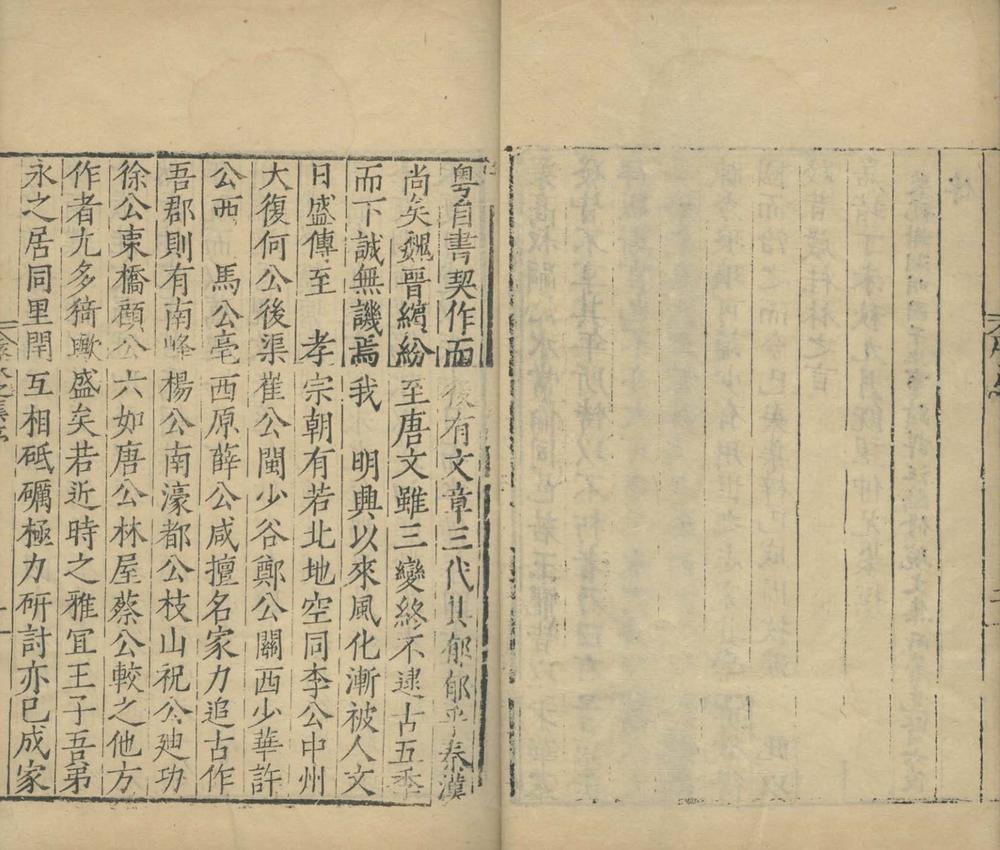 粵自書契作而後有文章三代其郁郁乎秦漢
尚矣魏晉繽紛至唐文雖三變終不逮古五季
而下誠無譏焉我 明興以來風化漸被人文
日盛傳至 孝宗朝有若北地空同李公中州
大復何公後渠崔公閩少谷鄭公關西少華許
公西 馬公亳西原薛公咸擅名家力追古作
吾郡則有南峰楊公南濠都公枝山祝公廸功
徐公東橋顧公六如唐公林屋蔡公較之他方
作者尤多猗歟盛矣若近時之雅宜王子吾弟
永之居同里閈互相砥礪極力研討亦已成家